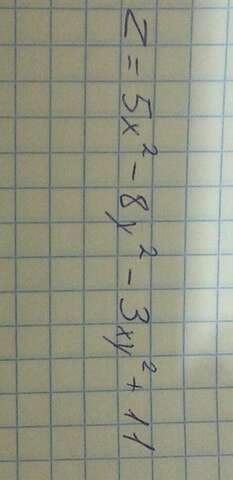 Z = 5x² - 8y² - 3xy² + 11